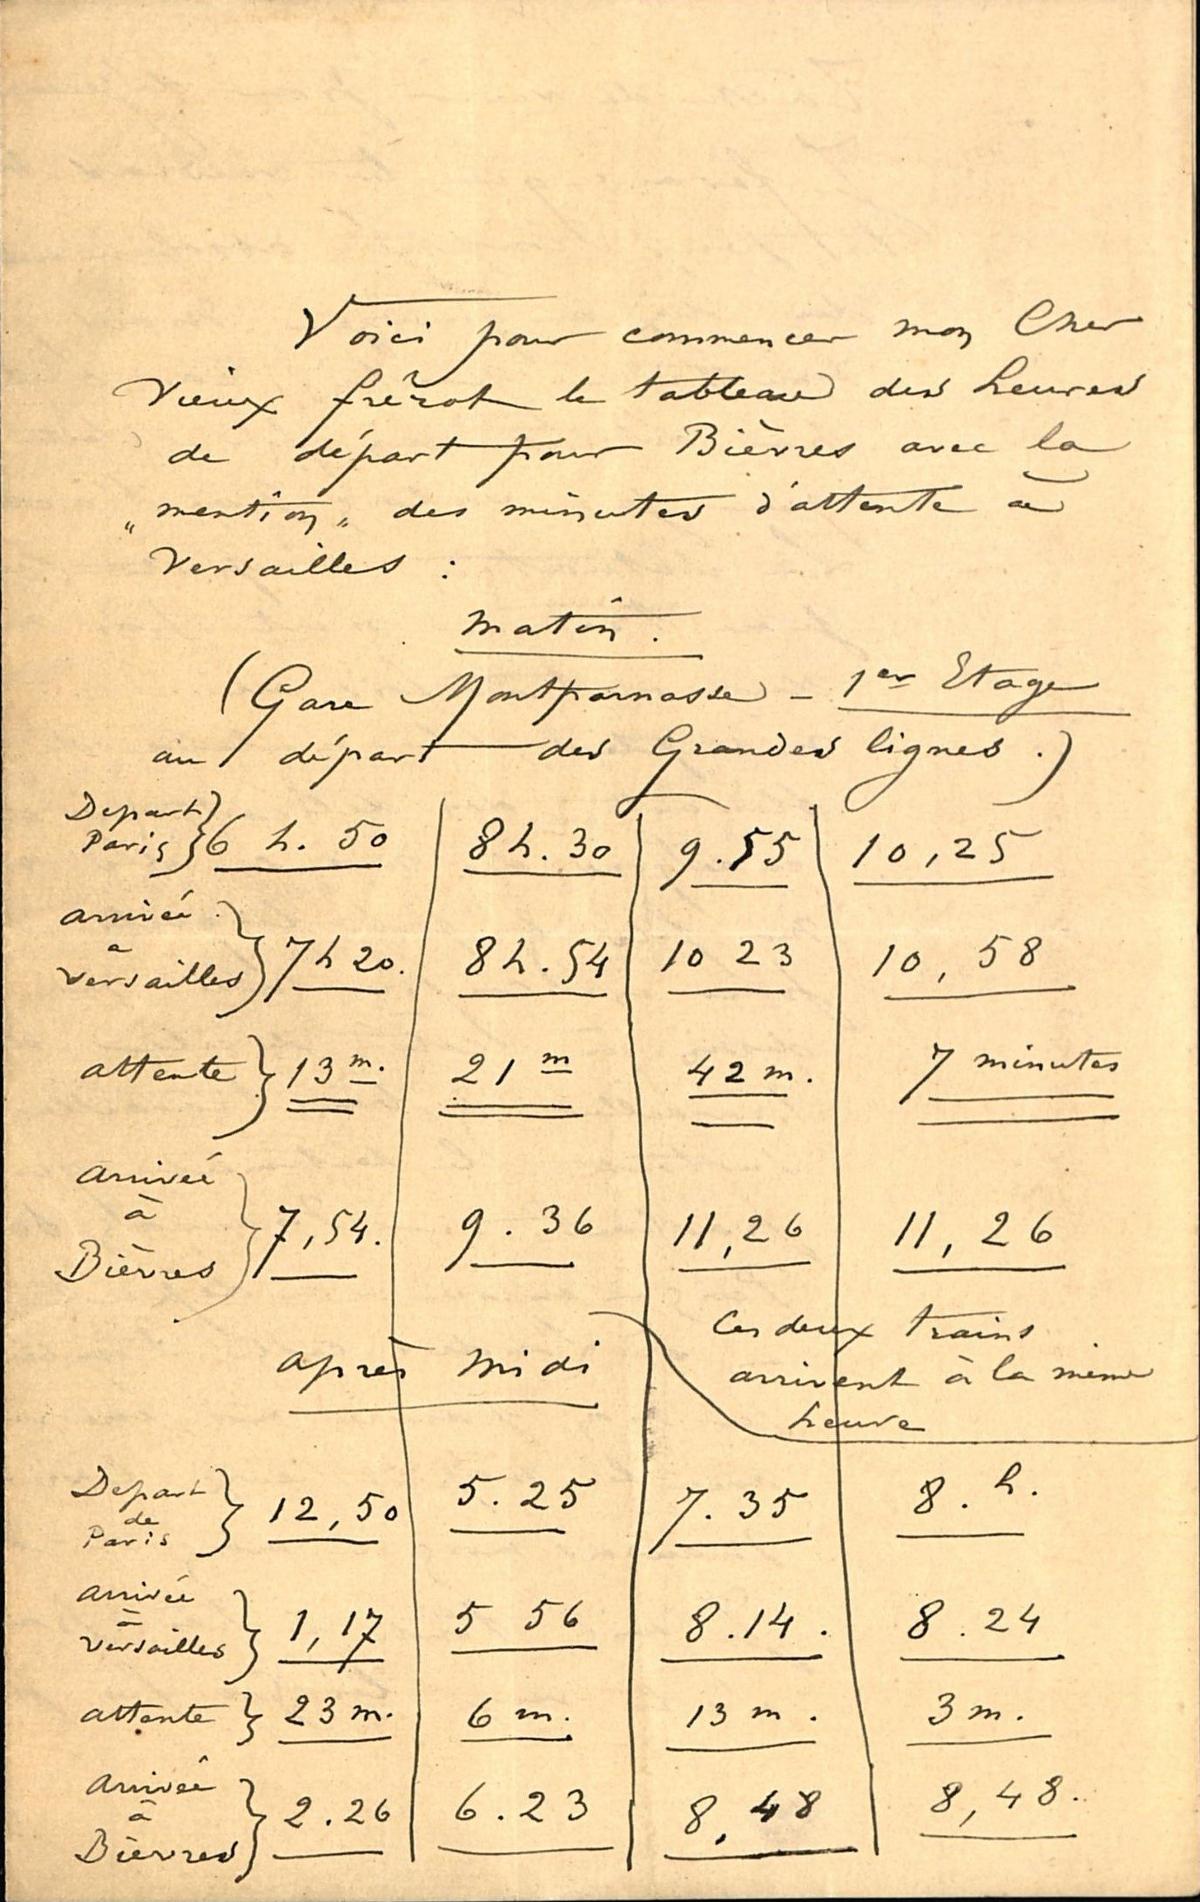 Voici pour commencer mon Cher
vieux frérot le tableau des heures
de départ pour Bièvres avec la
„mention„ des minutes d'attente à
Versailles :
Matin.
(Gare Montparnasse - 1er Etage
au départ des Grandes lignes.)
Depart Paris } 6 h. 50 | 8 h. 30 | 9.55 | 10,25
arrivée à Versailles } 7 h 20. | 8 h. 54 | 10 23 | 10, 58
attente } 13 m. | 21 m | 42 m. | 7 minutes
arrivée à Bièvres } 7,54. | 9.36 | 11,26 | 11, 26
après midi
Ces deux trains
arrivent à la même
heure
Depart de Paris } 12,50 | 5.25 | 7.35 | 8.h.
arrivée à Versailles } 1,17 | 5 56 | 8.14. | 8.24
attente } 23 m. | 6 m. | 13 m. | 3 m.
arrivée à Bièvres } 2.26 | 6.23 | 8.48 | 8,48.